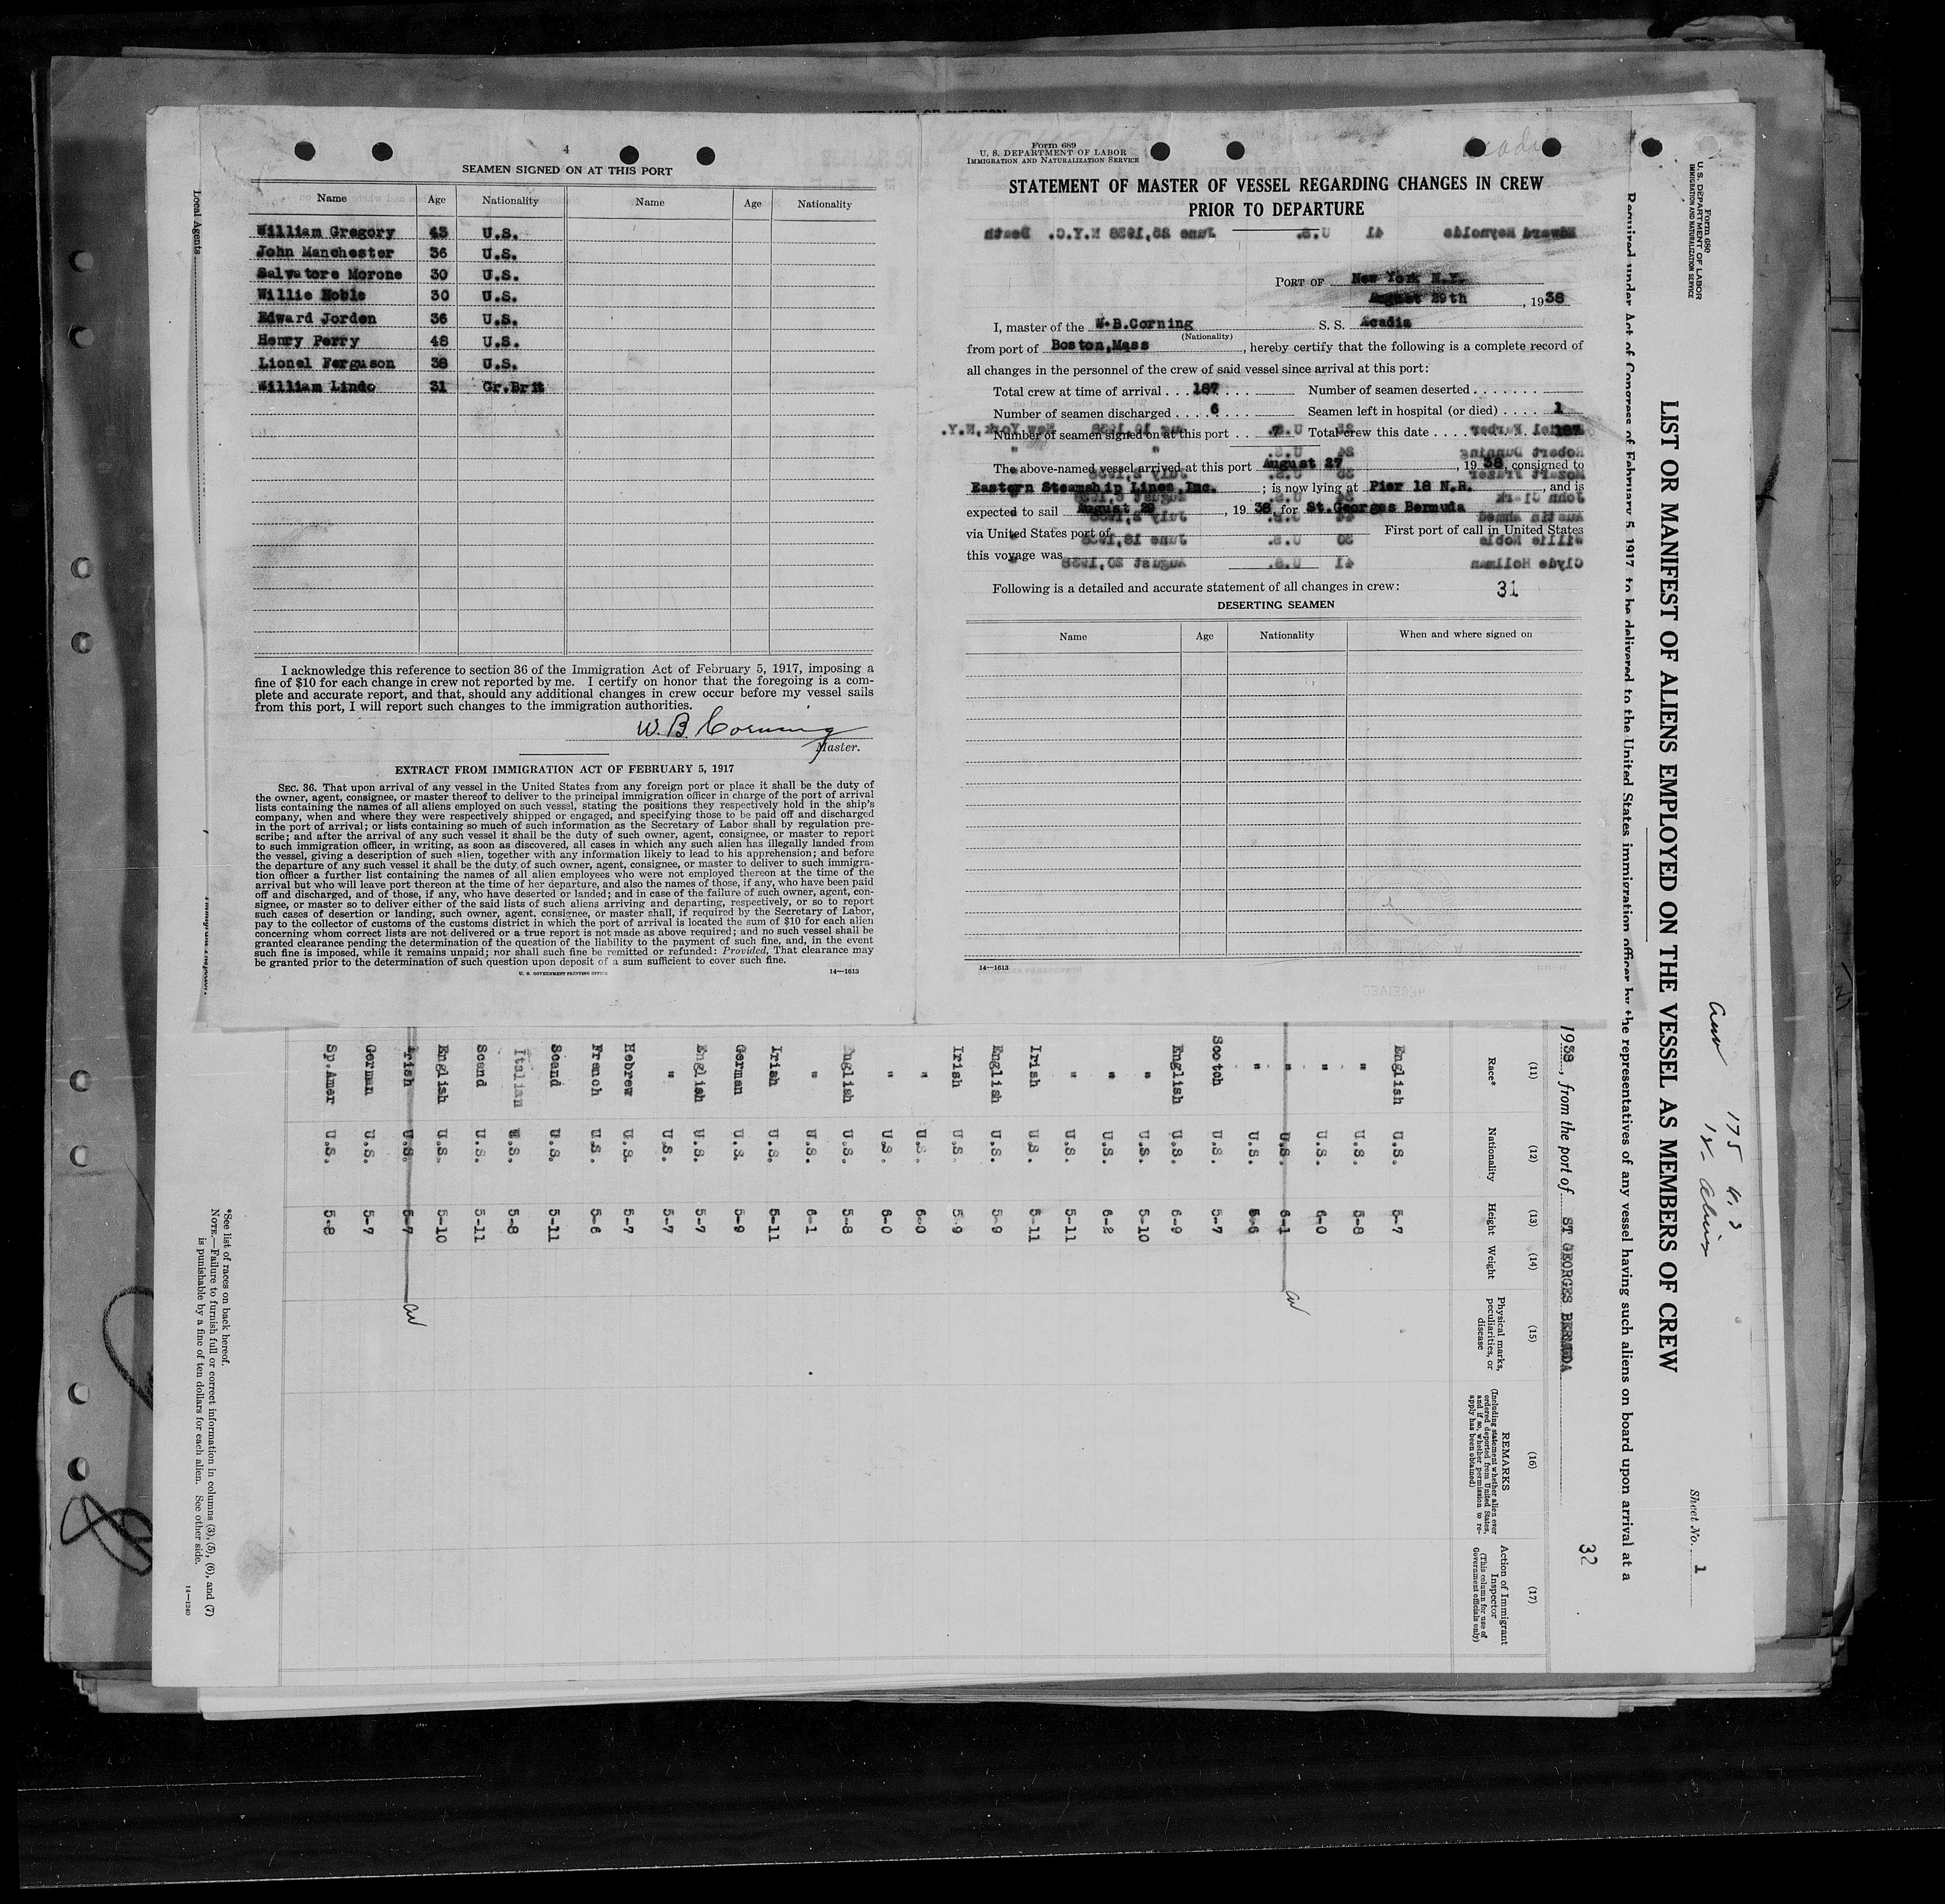 4
SEAMEN SIGNED ON AT THIS PORT
Name Age Nationality Name Age Nationality
William Gregory 43 U.S.
John Manchester 36 U.S.
Salvatore Morone 30 U.S.
Willie Noble 30 U.S.
Edward Jorden 36 U.S.
Henry Perry 48 U.S.
Lionel Ferguson 38 U.S.
William Lindo 31 Gr.Brit
I acknowledge this reference to section 36 of the Immigration Act of February 5, 1917, imposing a
fine of $10 for each change in crew not reported by me. I certify on honor that the foregoing is a com-
plete and accurate report, and that, should any additional changes in crew occur before my vessel sails
from this port, I will report such changes to the immigration authorities.
W. B. Corning
Master.
EXTRACT FROM IMMIGRATION ACT OF FEBRUARY 5, 1917
SEC. 36. That upon arrival of any vessel in the United States from any foreign port or place it shall be the duty of
the owner, agent, consignee, or master thereof to deliver to the principal immigration officer in charge of the port of arrival
lists containing the names of all aliens employed on such vessel, stating the positions they respectively hold in the ship's
company, when and where they were respectively shipped or engaged, and specifying those to be paid off and discharged
in the port of arrival; or lists containing so much of such information as the Secretary of Labor shall by regulation pre-
scribe; and after the arrival of any such vessel it shall be the duty of such owner, agent, consignee, or master to report
to such immigration officer, in writing, as soon as discovered, all cases in which any such alien has illegally landed from
the vessel, giving a description of such alien, together with any information likely to lead to his apprehension; and before
the departure of any such vessel it shall be the duty of such owner, agent, consignee, or master to deliver to such immigra-
tion officer a further list containing the names of all alien employees who were not employed thereon at the time of the
arrival but who will leave port thereon at the time of her departure, and also the names of those, if any, who have been paid
off and discharged, and of those, if any, who have deserted or landed; and in case of the failure of such owner, agent, con-
signee, or master so to deliver either of the said lists of such aliens arriving and departing, respectively, or so to report
such cases of desertion or landing, such owner, agent, consignee, or master shall, if required by the Secretary of Labor,
pay to the collector of customs of the customs district in which the port of arrival is located the sum of $10 for each alien
concerning whom correct lists are not delivered or a true report is not made as above required; and no such vessel shall be
granted clearance pending the determination of the question of the liability to the payment of such fine, and, in the event
such fine is imposed, while it remains unpaid; nor shall such fine be remitted or refunded: Provided, That clearance may
be granted prior to the determination of such question upon deposit of a sum sufficient to cover such fine.
U. S. GOVERNMENT PRINTING OFFICE 14—1613
Local Agents
Form 689
U. S. DEPARTMENT OF LABOR
IMMIGRATION AND NATURALIZATION SERVICE
STATEMENT OF MASTER OF VESSEL REGARDING CHANGES IN CREW
PRIOR TO DEPARTURE
Edward Reynolds 41 U.S. June 28,1938 N.Y.C. Death
PORT OF New York N.Y.
August 29th, 1938
I, master of the W.B.Corning S. S. Acadia
(Nationality)
from port of Boston,Mass, hereby certify that the following is a complete record of
all changes in the personnel of the crew of said vessel since arrival at this port:
Total crew at time of arrival . . . 187 . . . . Number of seamen deserted . . . . . . .
Number of seamen discharged . . . . 6 Seamen left in hospital (or died) . . . . 1
Number of seamen signed on at this port . . 7 Total crew this date . . . . . . . . . 187
The above-named vessel arrived at this port August 27, 1938, consigned to
Eastern Steamship Lines,Inc. ; is now lying at Pier 18 N.R., and is
expected to sail August 29, 1938, for St.Georges Bermuda
via United States port of First port of call in United States
this voyage was
Robert Dunning 24 U.S.
Mozart Frazer
John Clark
Austin Ahmed
Willie Noble 30 U.S. June 18,1938
Clyde Hollman 41 U.S. August 20,1938
Following is a detailed and accurate statement of all changes in crew: 31
DESERTING SEAMEN
Name Age Nationality When and where signed on
14—1613
Form 680
U. S. DEPARTMENT OF LABOR
IMMIGRATION AND NATURALIZATION SERVICE
Sheet No. 1
LIST OR MANIFEST OF ALIENS EMPLOYED ON THE VESSEL AS MEMBERS OF CREW
Required under Act of Congress of February 5, 1917, to be delivered to the United States immigration officer by the representatives of any vessel having such aliens on board upon arrival at a
1938, from the port of ST GEORGES BERMUDA
32
175 U.S
12 - aliens
(11) (12) (13) (14) (15) (16) (17)
Race* Nationality Height Weight Physical marks, peculiarities, or disease REMARKS (Including statement whether alien ever ordered deported from United States, and if so, whether permission to re-apply has been obtained) Action of Immigrant Inspector (This column for use of Government officials only)
English U.S. 5-7
" U.S. 5-8
" U.S. 6-0
" U.S. 6-1
" U.S. 5-6
Scotch U.S. 5-7
English U.S. 6-9
" U.S. 5-10
" U.S. 6-2
" U.S. 5-11
Irish U.S. 5-11
English U.S. 5-9
Irish U.S. 5-9
" U.S. 6-0
" U.S. 6-0
English U.S. 5-8
" U.S. 6-1
Irish U.S. 5-11
German U.S. 5-9
English U.S. 5-7
" U.S. 5-7
Hebrew U.S. 5-7
French U.S. 5-6
Scand U.S. 5-11
Italian U.S. 5-8
Scand U.S. 5-11
English U.S. 5-10
Irish U.S. 5-7
German U.S. 5-7
Sp.Amer U.S. 5-8
*See list of races on back hereof.
NOTE.—Failure to furnish full or correct information in columns (3), (5), (6), and (7)
is punishable by a fine of ten dollars for each alien. See other side.
14—1240